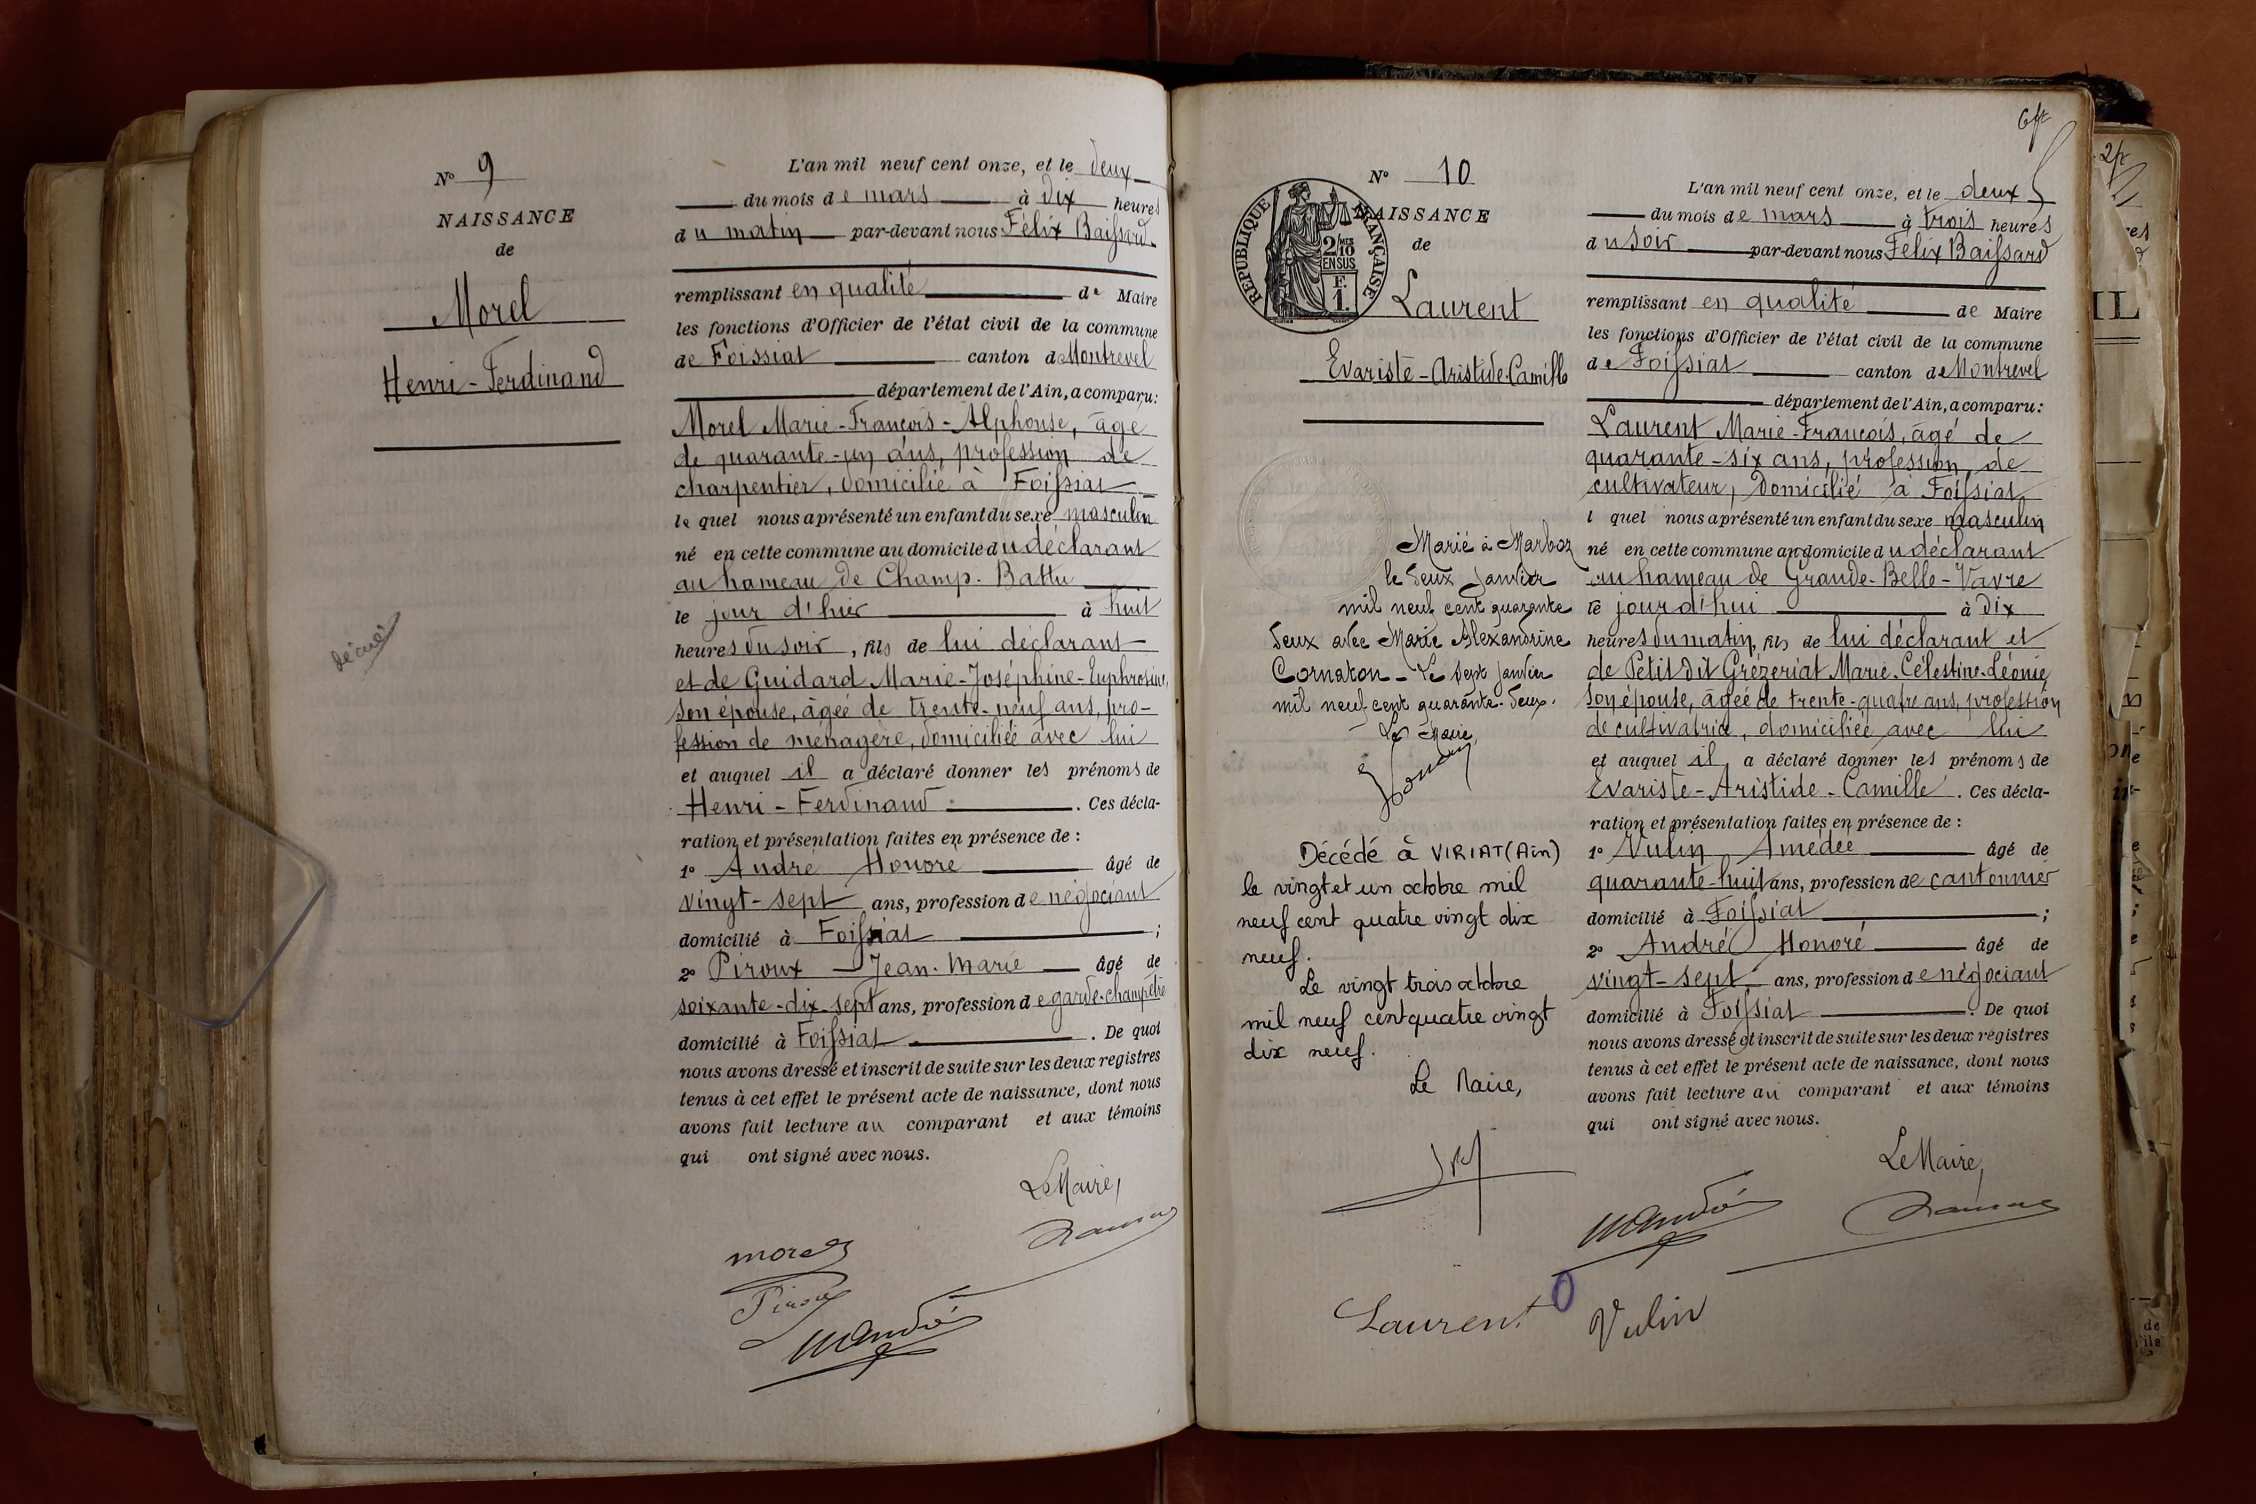 N° 9
NAISSANCE
de
Morel
Henri-Ferdinand
décédé
L'an mil neuf cent onze, et le deux
du mois de mars à dix heures
du matin par-devant nous Félix Baissard
remplissant en qualité de Maire
les fonctions d'Officier de l'état civil de la commune
de Foissiat canton de Montrevel
département de l'Ain, a comparu:
Morel Marie-François-Alphonse, âgé
de quarante-un ans, profession de
charpentier, domicilié à Foissiat
lequel nous a présenté un enfant du sexe masculin
né en cette commune au domicile du déclarant
au hameau de Champ-Battu
le jour d'hier à huit
heures du soir, fils de lui déclarant
et de Guidard Marie-Joséphine-Euphrosine,
son épouse, âgée de trente-neuf ans, pro-
fession de ménagère, domiciliée avec lui
et auquel il a déclaré donner les prénoms de
Henri-Ferdinand. Ces décla-
ration et présentation faites en présence de :
1° André Honoré âgé de
vingt-sept ans, profession de négociant
domicilié à Foissiat ;
2° Piroux Jean-Marie âgé de
soixante-dix-sept ans, profession de garde-champêtre
domicilié à Foissiat. De quoi
nous avons dressé et inscrit de suite sur les deux registres
tenus à cet effet le présent acte de naissance, dont nous
avons fait lecture au comparant et aux témoins
qui ont signé avec nous.
Le Maire,
Morel
Piroux
N° 10
NAISSANCE
de
REPUBLIQUE FRANÇAISE
2/10
EN SUS
F.
1.
Laurent
Evariste-Aristide-Camille
Marié à Marboz
le deux janvier
mil neuf cent quarante
deux avec Marie Alexandrine
Cornaton - Le sept janvier
mil neuf cent quarante-deux.
Le Maire,
Décédé à VIRIAT (Ain)
le vingt et un octobre mil
neuf cent quatre vingt dix
neuf.
Le vingt trois octobre
mil neuf cent quatre vingt
dix neuf.
Le Maire,
L'an mil neuf cent onze, et le deux
du mois de mars à trois heures
du soir par-devant nous Félix Baissard
remplissant en qualité de Maire
les fonctions d'Officier de l'état civil de la commune
de Foissiat canton de Montrevel
département de l'Ain, a comparu:
Laurent Marie-François, âgé de
quarante-six ans, profession de
cultivateur, domicilié à Foissiat
l quel nous a présenté un enfant du sexe masculin
né en cette commune au domicile du déclarant
au hameau de Grande-Belle-Vavre
le jour d'hui à dix
heures du matin, fils de lui déclarant et
de Petit dit Grézeriat Marie-Célestine-Léonie
son épouse, âgée de trente-quatre ans, profession
de cultivatrice, domiciliée avec lui
et auquel il a déclaré donner les prénoms de
Evariste-Aristide-Camille. Ces décla-
ration et présentation faites en présence de :
1° Vulin Amédée âgé de
quarante-huit ans, profession de cantonnier
domicilié à Foissiat ;
2° André Honoré âgé de
vingt-sept ans, profession de négociant
domicilié à Foissiat. De quoi
nous avons dressé et inscrit de suite sur les deux registres
tenus à cet effet le présent acte de naissance, dont nous
avons fait lecture au comparant et aux témoins
qui ont signé avec nous.
Le Maire,
Laurent
Vulin